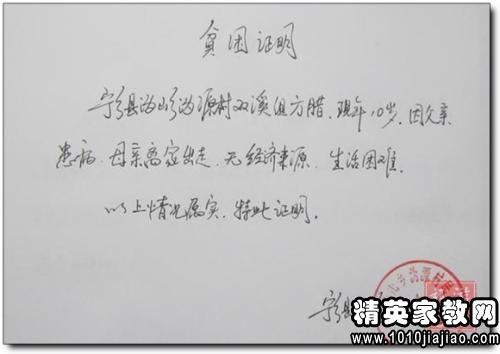 贫困证明
宁乡县沩山乡沩源村双溪组方腊，现年10岁，因父亲
患病，母亲离家出走，无经济来源，生活困难。
以上情况属实，特此证明。
精英家教网
www.1010jiajiao.com